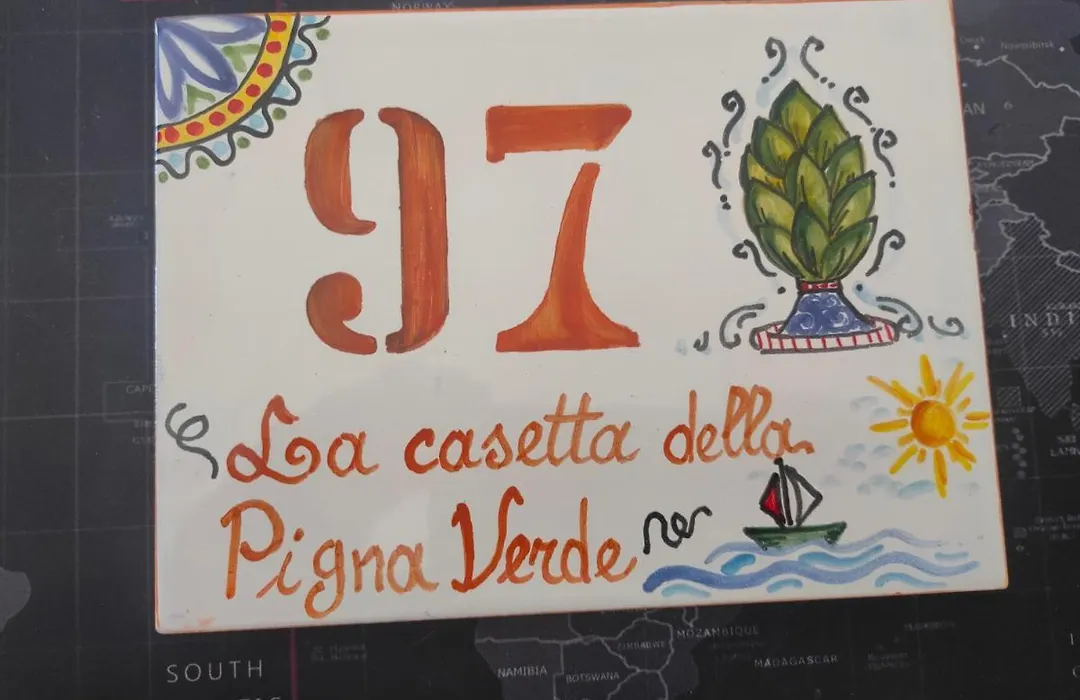 NORWAY
97
La casetta della
Pigna Verde
SOUTH
NAMIBIA
BOTSWANA
ZIMBABWE
MOZAMBIQUE
MADAGASCAR